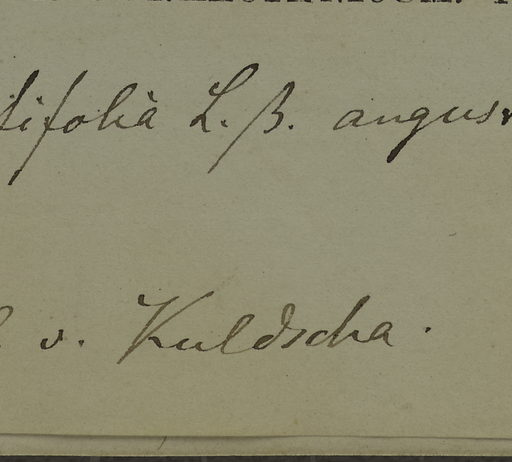 tifolia L. β. angus
v. Kuldscha.